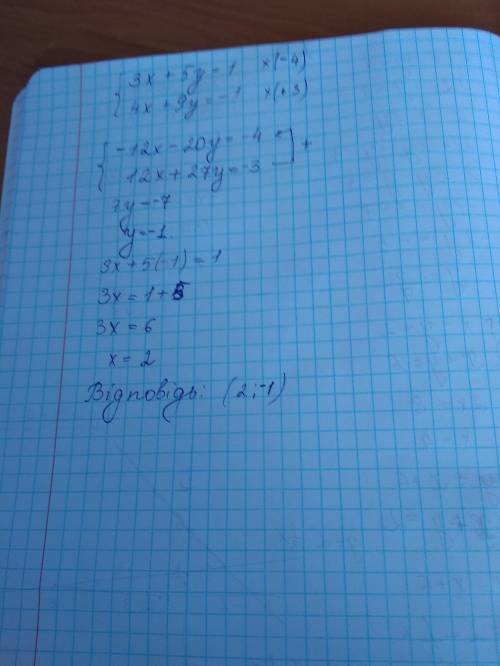 { 3x + 5y = 1 x(-4)
4x + 9y = -1 x(+3)
{ -12x - 20y = -4 ] +
12x + 27y = -3
7y = -7
y = -1.
3x + 5(-1) = 1
3x = 1 + 5
3x = 6
x = 2
Відповідь: (2; -1)